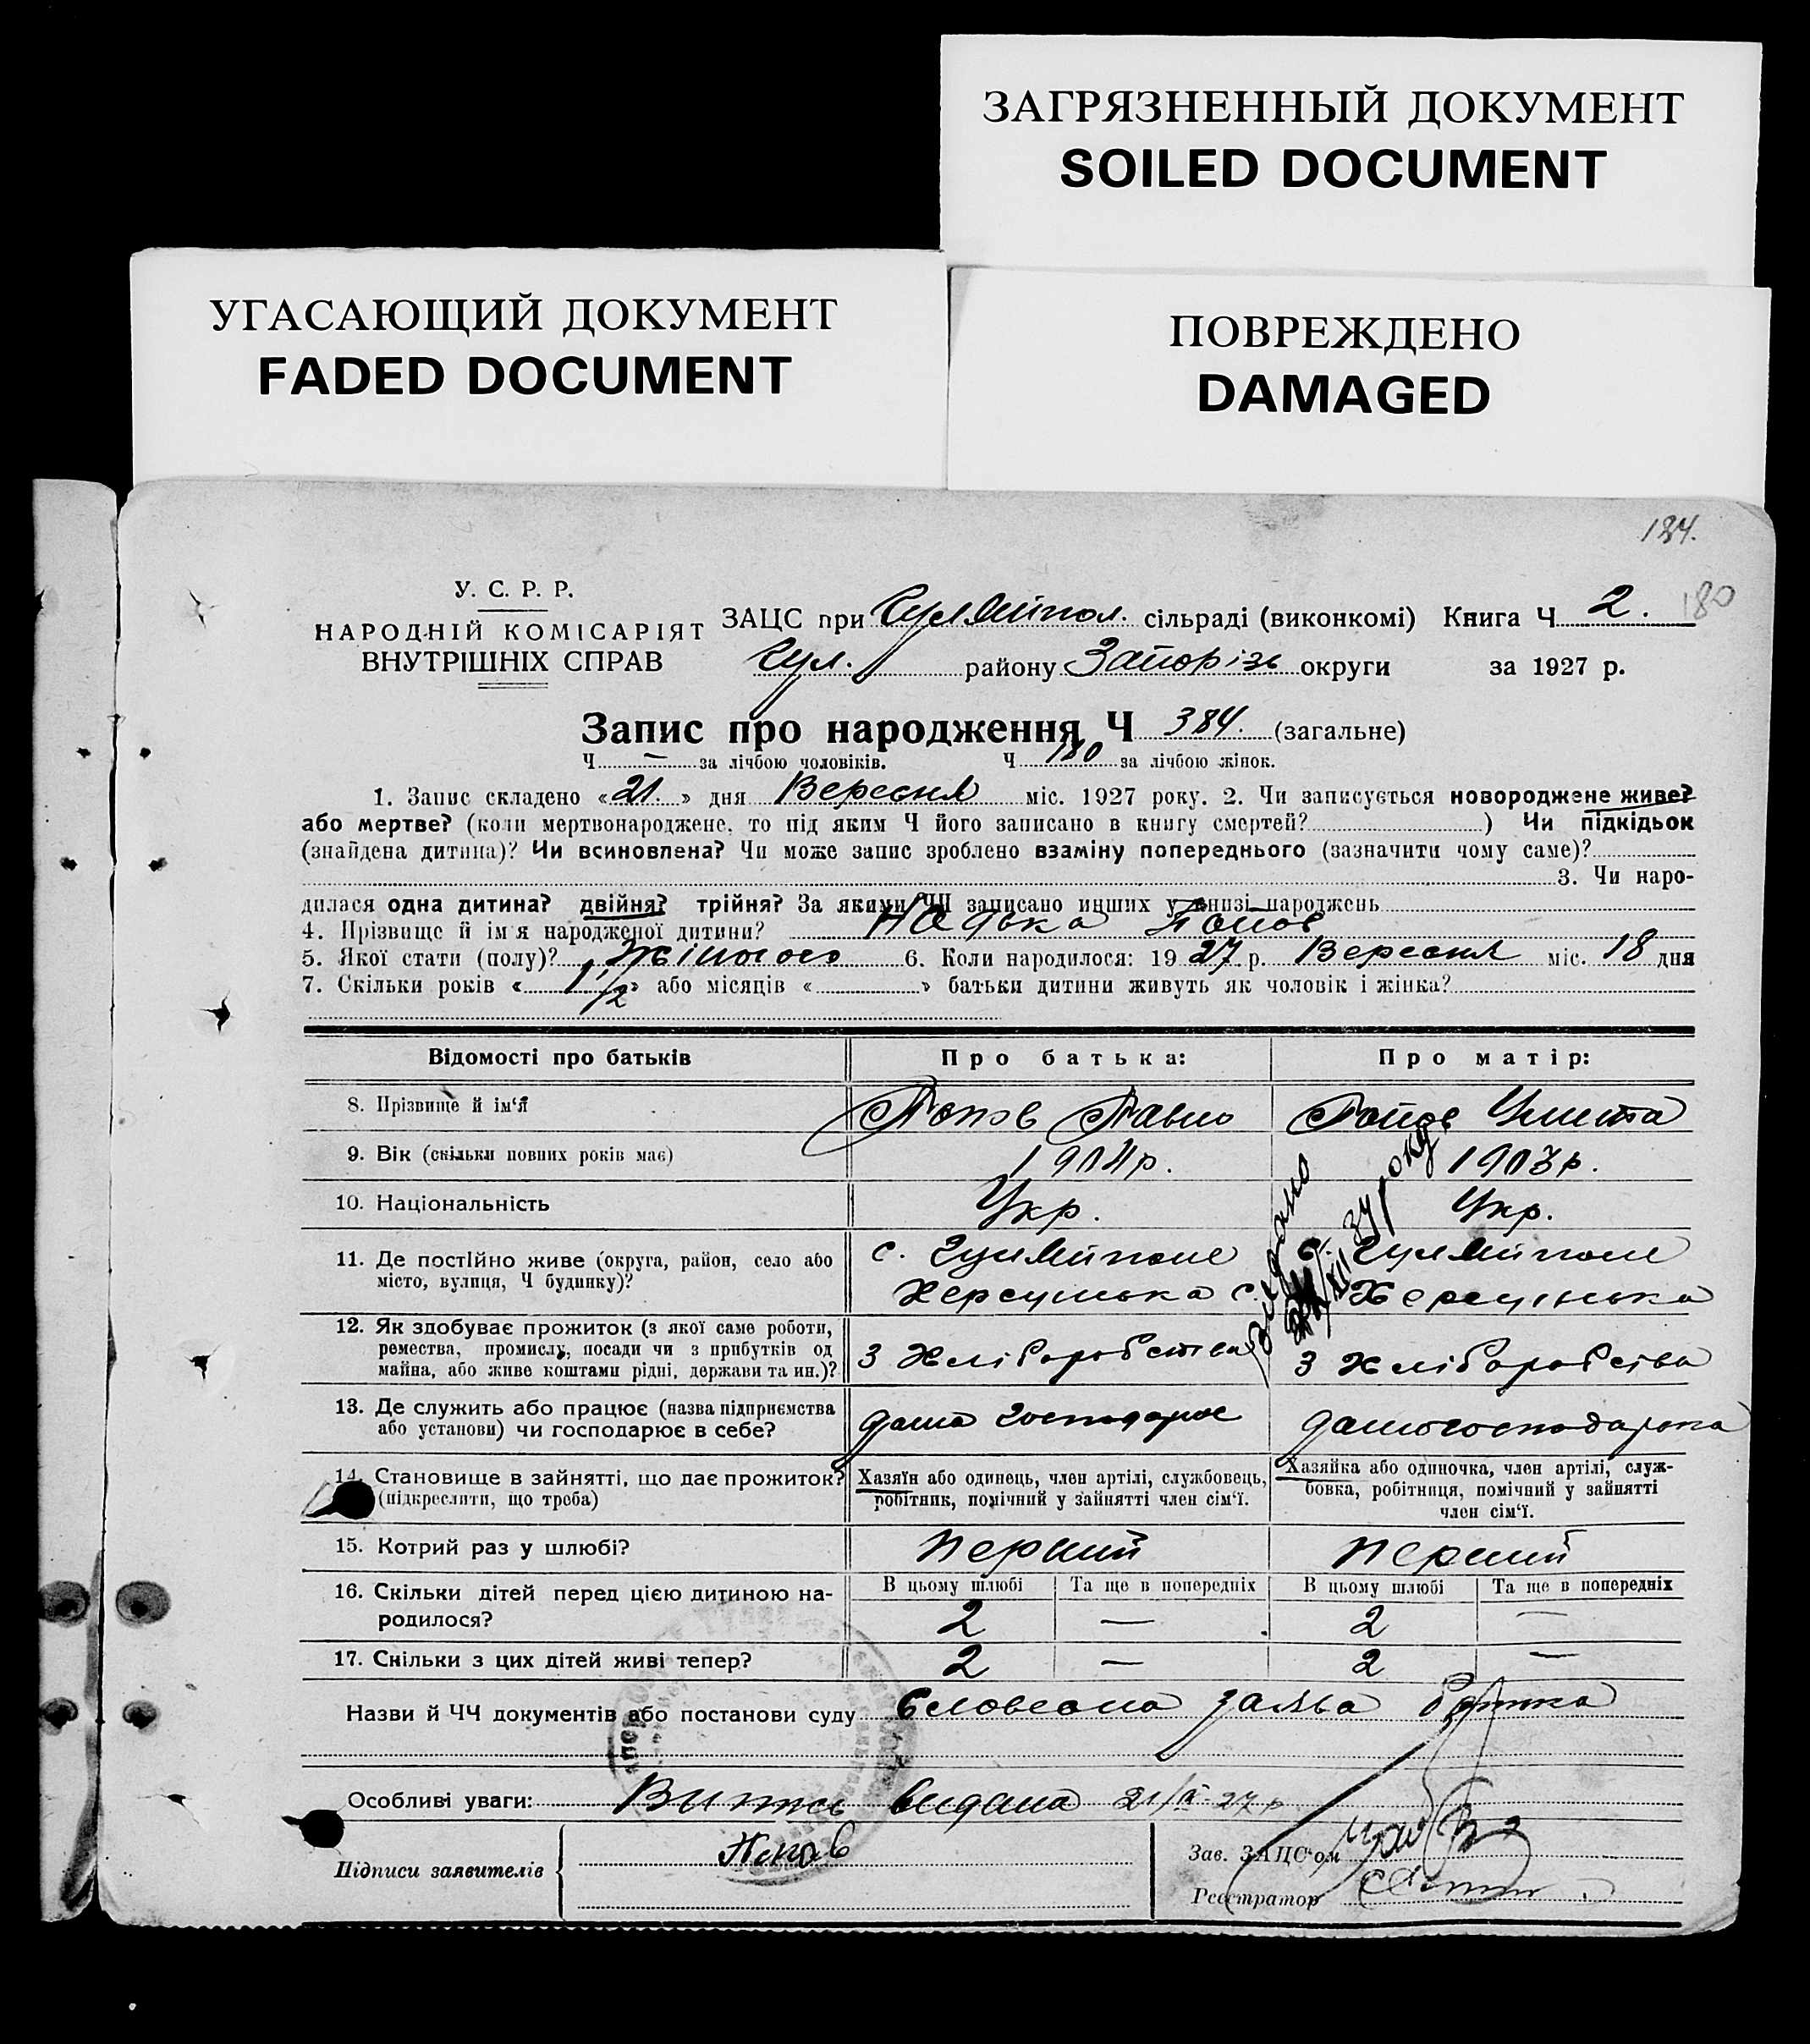 ЗАГРЯЗНЕННЫЙ ДОКУМЕНТ
SOILED DOCUMENT
УГАСАЮЩИЙ ДОКУМЕНТ
FADED DOCUMENT
ПОВРЕЖДЕНО
DAMAGED
184.
180
У. С. Р. Р.
НАРОДНІЙ КОМІСАРІЯТ
ВНУТРІШНІХ СПРАВ
ЗАЦС при Гуляйпол. сільраді (виконкомі) Книга Ч 2.
Гул. району Запоріз округи за 1927 р.
Запис про народження Ч 384. (загальне)
Ч — за лічбою чоловіків. Ч 180 за лічбою жінок.
1. Запис складено «21.» дня Вересня міс. 1927 року. 2. Чи записується новороджене живе?
або мертве? (коли мертвонароджене, то під яким Ч його записано в книгу смертей? ) Чи підкідьок
(знайдена дитина)? Чи всиновлена? Чи може запис зроблено взаміну попереднього (зазначити чому саме)?
3. Чи наро-
дилася одна дитина? двійня? трійня? За якими ЧЧ записано инших у книзі народжень
4. Прізвище й ім'я народженої дитини? Надька Попов
5. Якої стати (полу)? Жіночого 6. Коли народилося: 1927 р. Вересня міс. 18 дня
7. Скільки років «1 1/2» або місяців « » батьки дитини живуть як чоловік і жінка?
Відомості про батьків Про батька: Про матір:
8. Прізвище й ім'я Попов Павло Попов
9. Вік (скільки повних років має) 1904р. 1903р.
10. Національність Укр. Укр.
11. Де постійно живе (округа, район, село або с. Гуляйполе с. Гуляйполе
місто, вулиця, Ч будинку)? Херсунська с. Херсунська
видано
року
12. Як здобуває прожиток (з якої саме роботи,
ремества, промислу, посади чи з прибутків од З хліборобства З хліборобства
майна, або живе коштами рідні, держави та ин.)?
13. Де служить або працює (назва підприємства
або установи) чи господарює в себе? домогосподарка
14. Становище в зайнятті, що дає прожиток? Хазяїн або одинець, член артілі, службовець, Хазяйка або одиночка, член артілі, служ-
(підкреслити, що треба) робітник, помічний у зайнятті член сім'ї. бовка, робітниця, помічний у зайнятті
член сім'ї.
15. Котрий раз у шлюбі? перший перший
В цьому шлюбі Та ще в попередніх В цьому шлюбі Та ще в попередніх
16. Скільки дітей перед цією дитиною на-
родилося? 2 — 2 —
17. Скільки з цих дітей живі тепер? 2 — 2 —
Назви й ЧЧ документів або постанови суду Словесна заява батька
Особливі уваги: Випись видана 21/IX-27р
Підписи заявителів Попов
Зав. ЗАЦС'ом
Реєстратор